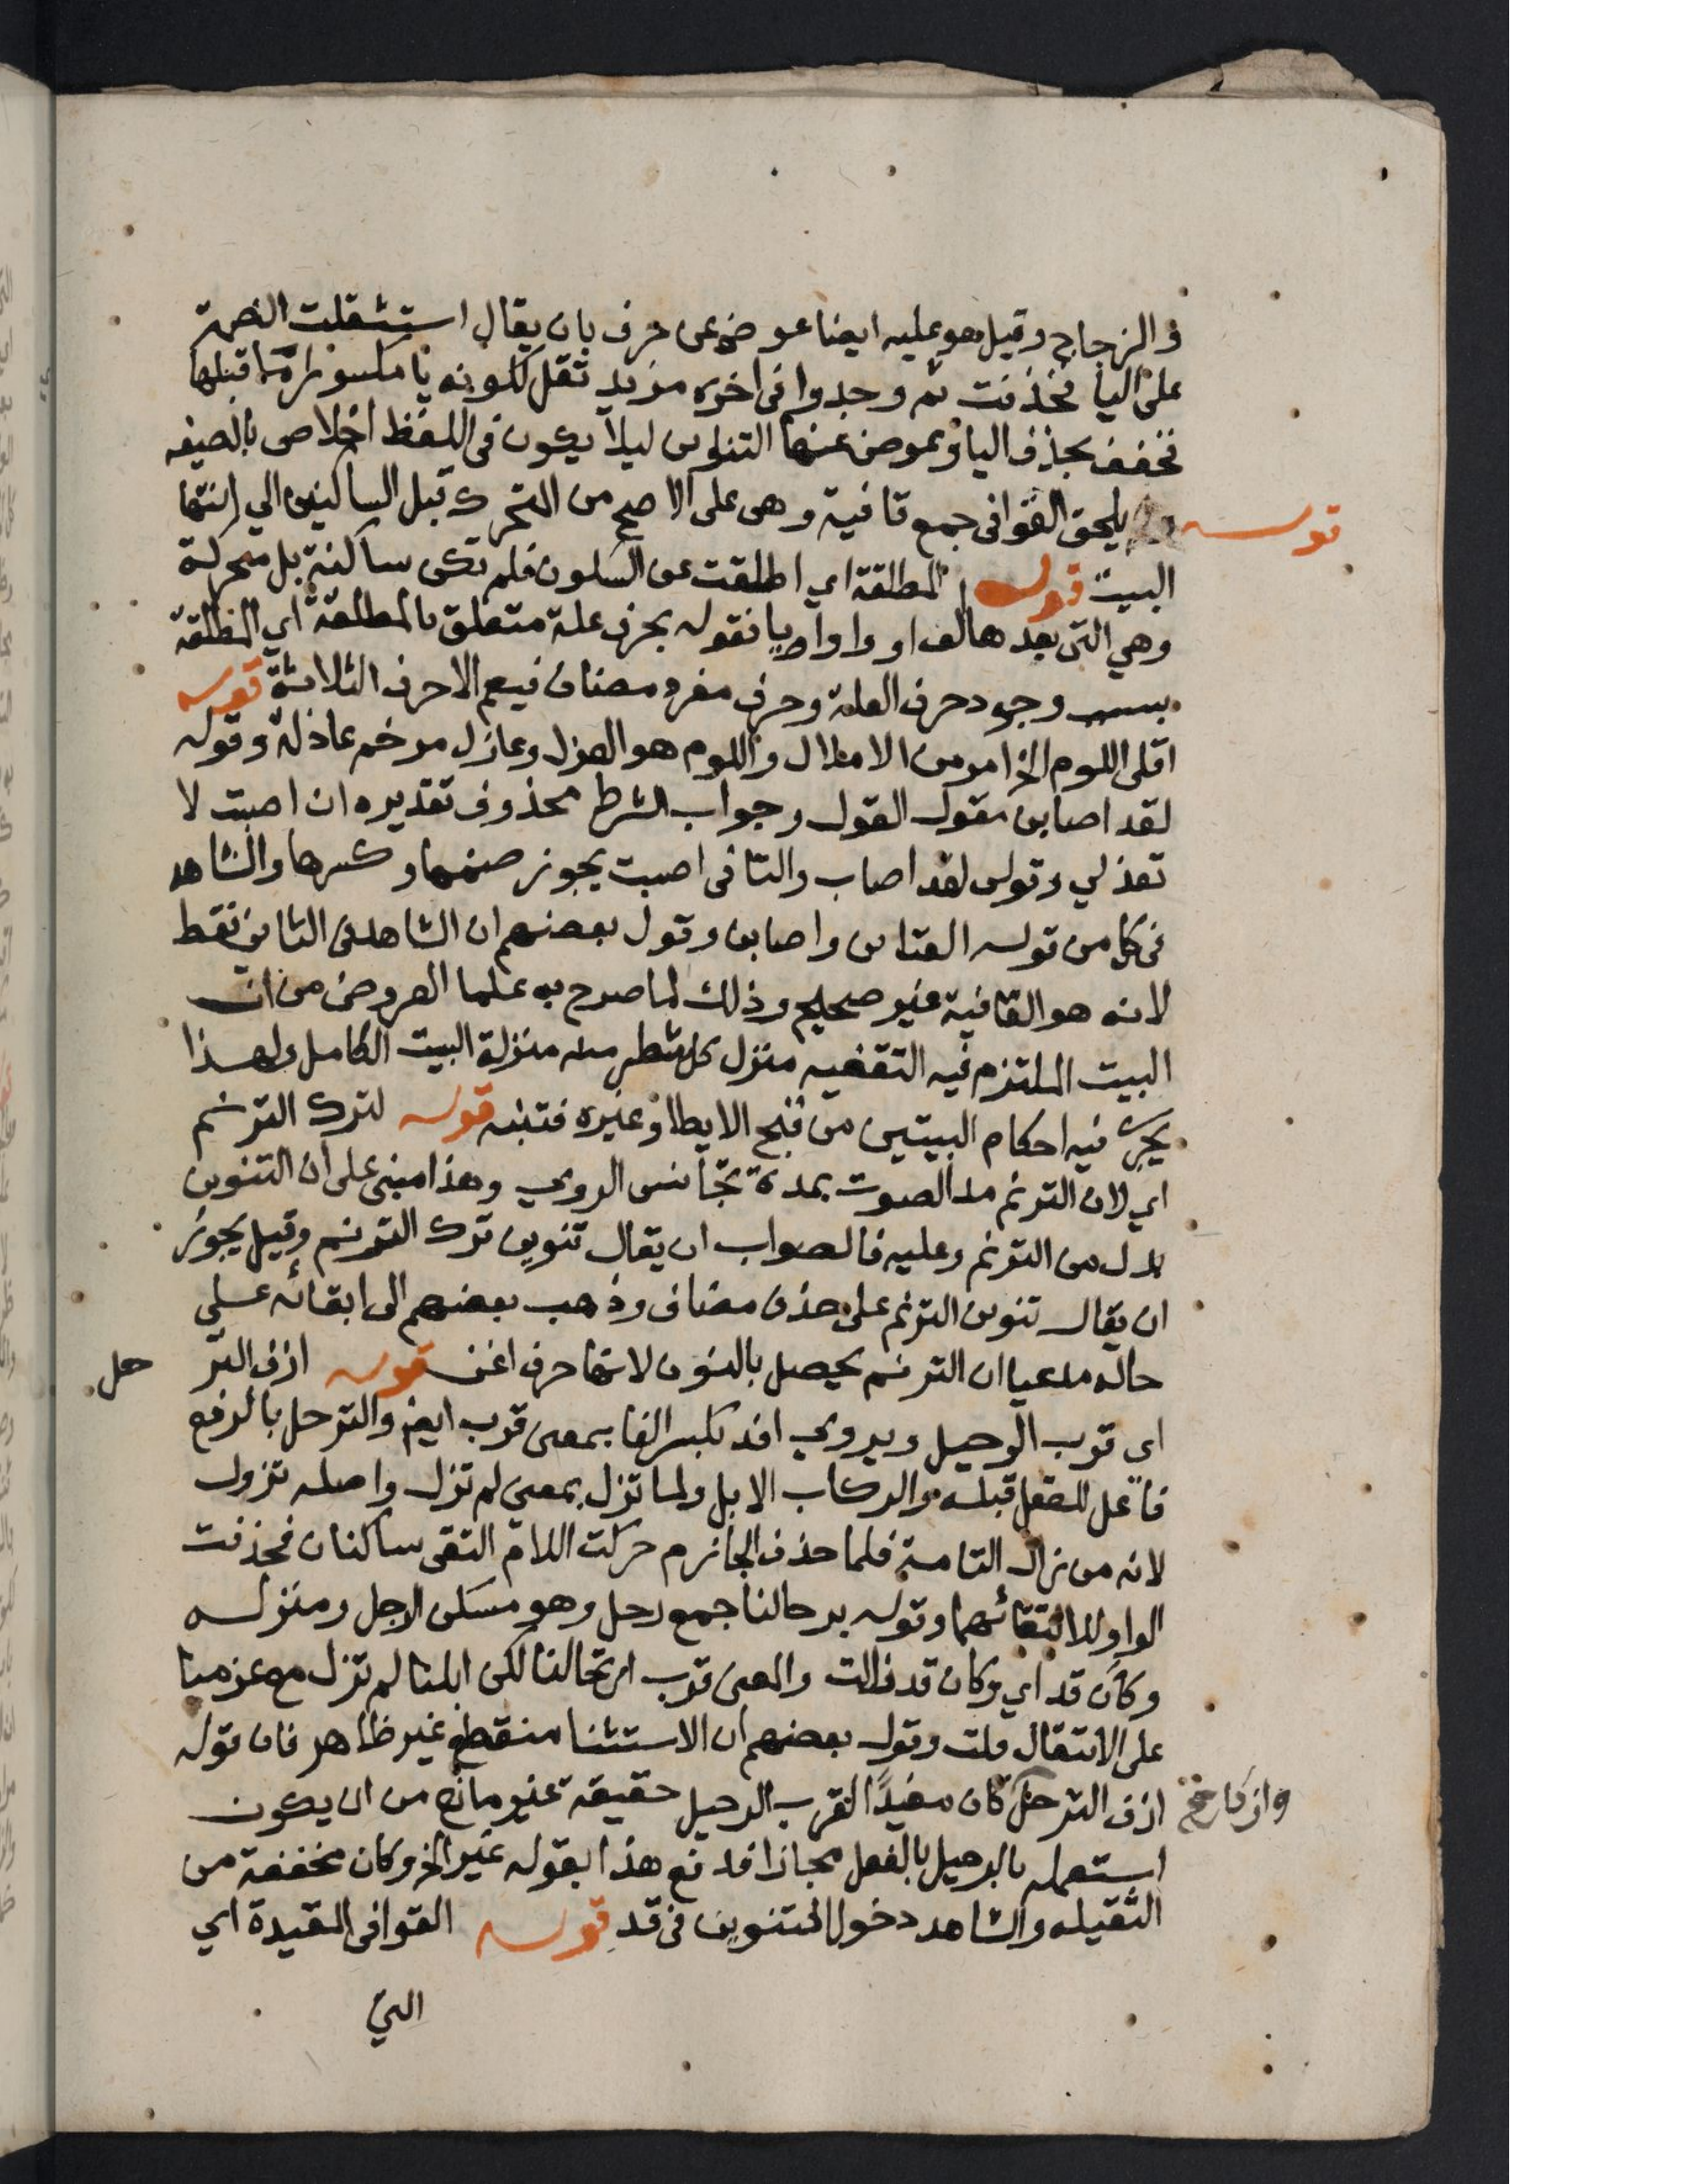 و الزجاج وقيل هو عليه ايضا عوض عن حرف بان يقال استثقلت الضمة
على اليا فحذفت ثم وجدوا في اخره مزيد ثقل لكونه يا مكسورا ما قبلها
فخفف بحذف اليا وعوض عنها التنوين ليلا يكون في اللفظ اخلاص بالصيغه
قوله يلحق القوافي جمع قافية وهي على الاصح من المتحرك قبل الساكنين الي انتها
البيت قوله المطلقة اي اطلقت عن السكون فلم تكن ساكنة بل متحركة
وهي التي بعدها الف او واو او يا فقوله بحرف علة متعلق بالمطلقة اي المطلقة
بسبب وجود حرف العلة وحرف مفرد مضاف فيعم الاحرف الثلاثة قوله
اقلي اللوم الخ امر من الاقلال واللوم هو العزل وعازل مرخم عاذلة وقوله
لقد اصابن مقول القول وجواب الشرط محذوف تقديره ان اصبت لا
تعذلي وقولي لقد اصاب والتا في اصبت يجوز ضمها وكسرها والشاهد
في كل من قوله العتابن واصابن وقول بعضهم ان الشاهد في الثاني فقط
لانه هو القافية غير صحيح وذلك لما صرح به علما العروض من ان
البيت الملتزم فيه التقفيه منزل كل شطر منه منزلة البيت الكامل ولهذا
يجرى فيه احكام البيتين من قبح الايطا وغيره فتنبه قوله لترك الترنم
اي لان الترنم مد الصوت بمدة تجانس الروي وهذا مبنى على ان التنوين
بدل من الترنم وعليه فالصواب ان يقال تنوين ترك الترنم وقيل يجوز
ان يقال تنوين الترنم على حذف مضاف وذهب بعضهم الى ابقائه على
حاله مدعيا ان الترنم يحصل بالنون لانها حرف اغن قوله ازف التر
حل
اي قرب الرحيل ويروي افد بكسر الفا بمعنى قرب ايض والترحل بالرفع
فاعل للفعل قبله والركاب الابل ولما تزل بمعنى لم تزل واصله تزول
لانه من زال التامة فلما حذف الجازم حركت اللام التقى ساكنان فحذفت
الواو لالتقائهما وقوله برحالنا جمع رحل وهو مسكن الرجل ومنزله
وكان قد اي وكان قد زالت والمعنى قرب ارتحالنا لكن ابلنا لم تزل مع عزمنا
على الانتقال قلت وقول بعضهم ان الاستثنا منقطع غير ظاهر فان قوله
ازف الترحل كان مفيدًا لقرب الرحيل حقيقة غير مانع من ان يكون
استعمله بالرحيل بالفعل مجازا فدفع هذا بقوله غير الخ وكان مخففة من
الثقيله والشاهد دخول التنوين في قد قوله القوافي المقيدة اي
التي